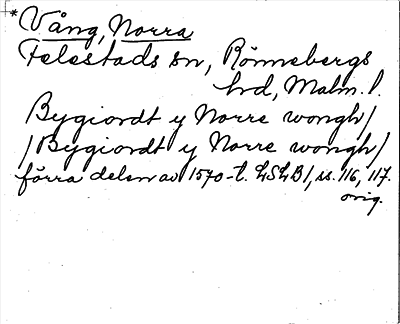 *Vång, Norra
Felestads sn, Rönnebergs
hd, Malm. l.
Bygiordt y Norre wongh/
/Bygiordt y Norre wongh/
förra delen av 1570-t. LSLB/, ss. 116, 117.
orig.